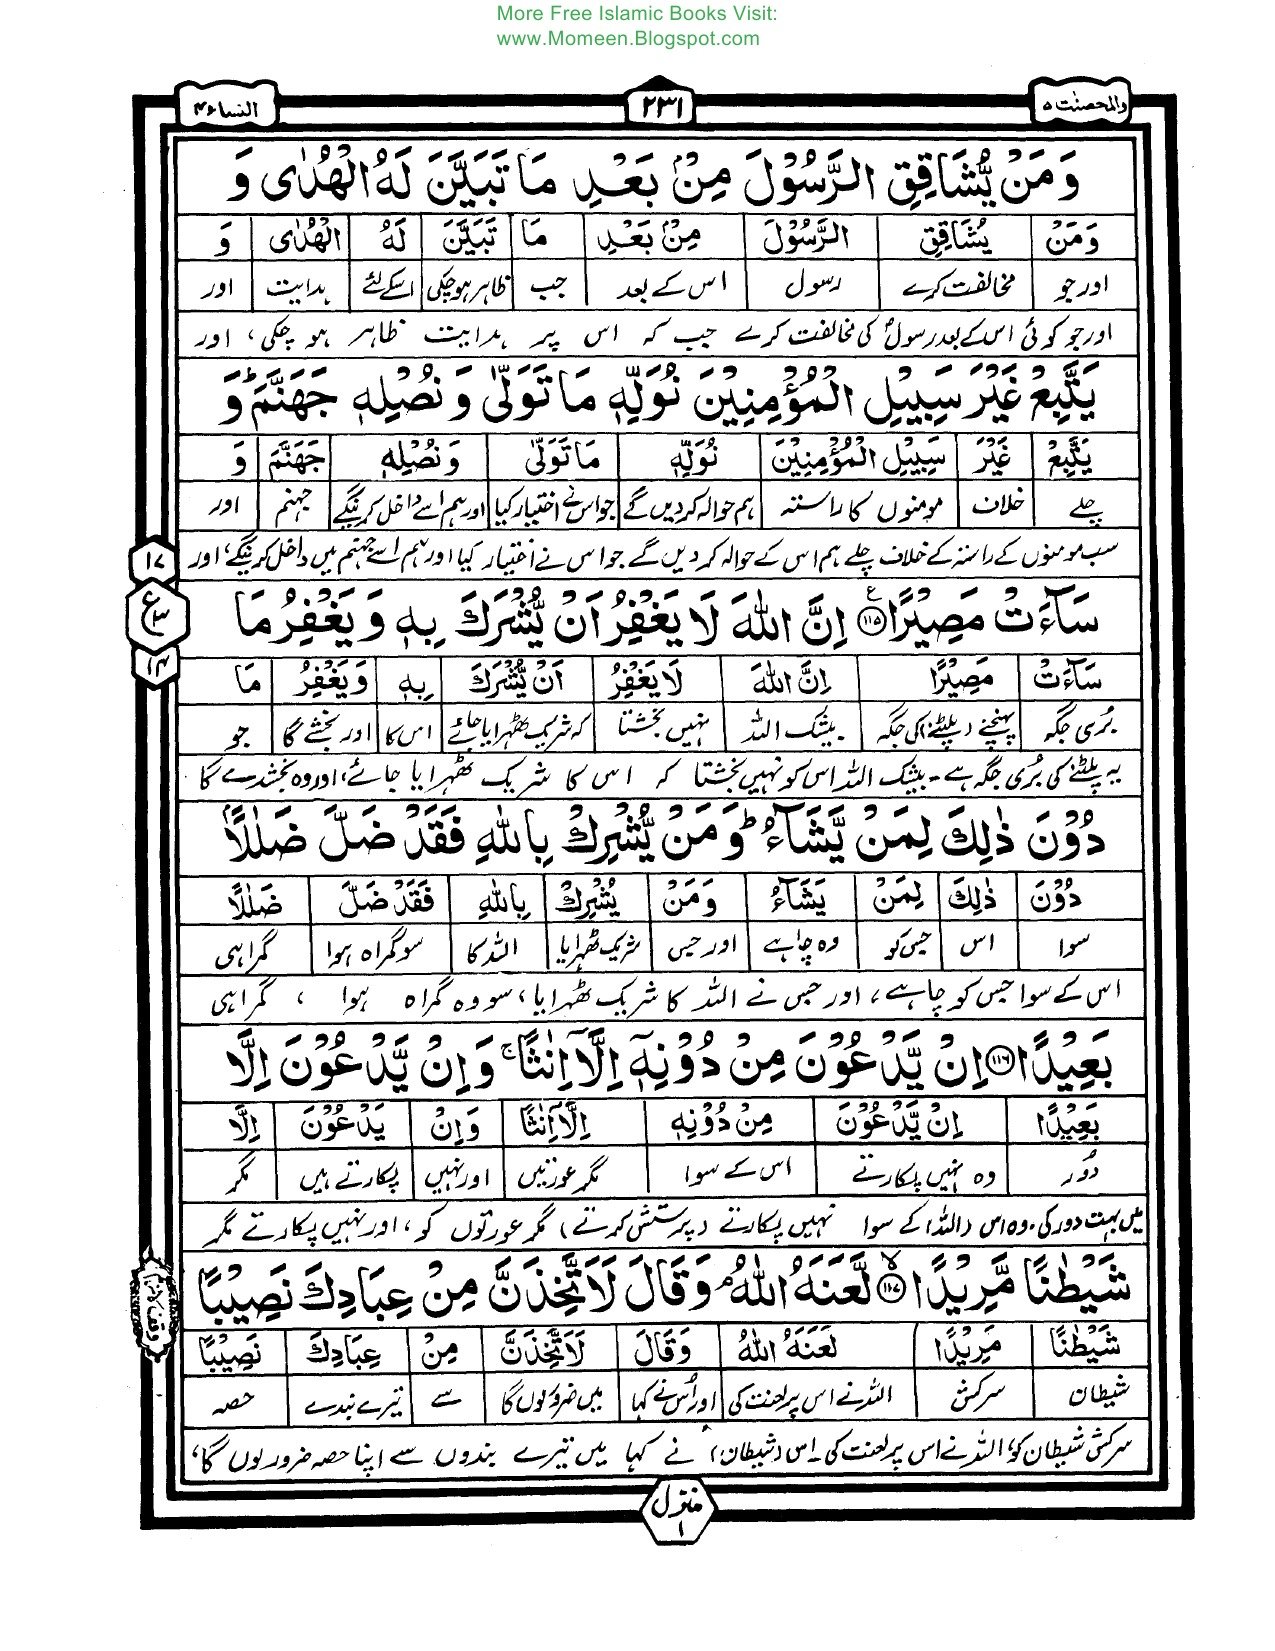 More Free Islamic Books Visit:
www.Momeen.Blogspot.com
النساء۴
۲۳۱
والمحصنٰت ۵
وَمَنْ يُّشَاقِقِ الرَّسُوْلَ مِنْۢ بَعْدِ مَا تَبَيَّنَ لَهُ الْهُدٰى وَ
وَمَنْ يُشَاقِقِ الرَّسُوْلَ مِنْۢ بَعْدِ مَا تَبَيَّنَ لَهُ الْهُدٰى وَ
اور جو مخالفت کرے رسول اس کے بعد جب ظاہر ہو چکی اسکے لئے ہدایت اور
اور جو کوئی اس کے بعد رسولؐ کی مخالفت کرے جب کہ اس پر ہدایت ظاہر ہو چکی، اور
يَتَّبِعْ غَيْرَ سَبِيْلِ الْمُؤْمِنِيْنَ نُوَلِّهٖ مَا تَوَلّٰى وَنُصْلِهٖ جَهَنَّمَ ؕ وَ
يَتَّبِعْ غَيْرَ سَبِيْلِ الْمُؤْمِنِيْنَ نُوَلِّهٖ مَا تَوَلّٰى وَنُصْلِهٖ جَهَنَّمَ وَ
چلے خلاف مومنوں کا راستہ ہم حوالہ کر دیں گے جو اس نے اختیار کیا اور ہم اسے داخل کرینگے جہنم اور
سب مومنوں کے راستہ کے خلاف چلے ہم اس کے حوالہ کر دیں گے جو اس نے اختیار کیا اور ہم اسے جہنم میں داخل کرینگے، اور
۱۷
ع ۳
۱۴
سَآءَتْ مَصِيْرًا ﴿۱۱۵﴾ ع اِنَّ اللّٰهَ لَا يَغْفِرُ اَنْ يُّشْرَكَ بِهٖ وَيَغْفِرُ مَا
سَآءَتْ مَصِيْرًا اِنَّ اللّٰهَ لَا يَغْفِرُ اَنْ يُّشْرَكَ بِهٖ وَيَغْفِرُ مَا
بُری جگہ پہنچنے (پلٹنے) کی جگہ بیشک اللہ نہیں بخشتا کہ شریک ٹھہرایا جائے اس کا اور بخشے گا جو
یہ پلٹنے کی بُری جگہ ہے۔ بیشک اللہ اس کو نہیں بخشتا کہ اس کا شریک ٹھہرایا جائے، اور وہ بخشدے گا
دُوْنَ ذٰلِكَ لِمَنْ يَّشَآءُ ؕ وَمَنْ يُّشْرِكْ بِاللّٰهِ فَقَدْ ضَلَّ ضَلٰلًاۢ
دُوْنَ ذٰلِكَ لِمَنْ يَشَآءُ وَمَنْ يُشْرِكْ بِاللّٰهِ فَقَدْ ضَلَّ ضَلٰلًا
سوا اس جس کو وہ چاہے اور جس شریک ٹھہرایا اللہ کا سو گمراہ ہوا گمراہی
اس کے سوا جس کو چاہے، اور جس نے اللہ کا شریک ٹھہرایا، سو وہ گمراہ ہوا ، گمراہی
بَعِيْدًا ﴿۱۱۶﴾ اِنْ يَّدْعُوْنَ مِنْ دُوْنِهٖۤ اِلَّاۤ اِنٰثًا ۚ وَاِنْ يَّدْعُوْنَ اِلَّا
بَعِيْدًا اِنْ يَّدْعُوْنَ مِنْ دُوْنِهٖ اِلَّاۤ اِنٰثًا وَاِنْ يَدْعُوْنَ اِلَّا
دُور وہ نہیں پکارتے اس کے سوا مگر عورتیں اور نہیں پکارتے ہیں مگر
میں بہت دور کی۔ وہ اس (اللہ) کے سوا نہیں پکارتے (پرستش کرتے) مگر عورتوں کو، اور نہیں پکارتے مگر
شَيْطٰنًا مَّرِيْدًا ﴿۱۱۷﴾ ۙ لَّعَنَهُ اللّٰهُ ۘ وَقَالَ لَاَتَّخِذَنَّ مِنْ عِبَادِكَ نَصِيْبًا
شَيْطٰنًا مَرِيْدًا لَعَنَهُ اللّٰهُ وَقَالَ لَاَتَّخِذَنَّ مِنْ عِبَادِكَ نَصِيْبًا
شیطان سرکش اللہ نے اس پر لعنت کی اور اُس نے کہا میں ضرور لوں گا سے تیرے بندے حصہ
سرکش شیطان کو، اللہ نے اس پر لعنت کی۔ اس (شیطان) نے کہا میں تیرے بندوں سے اپنا حصہ ضرور لوں گا،
وقف لازم
منزل ۱